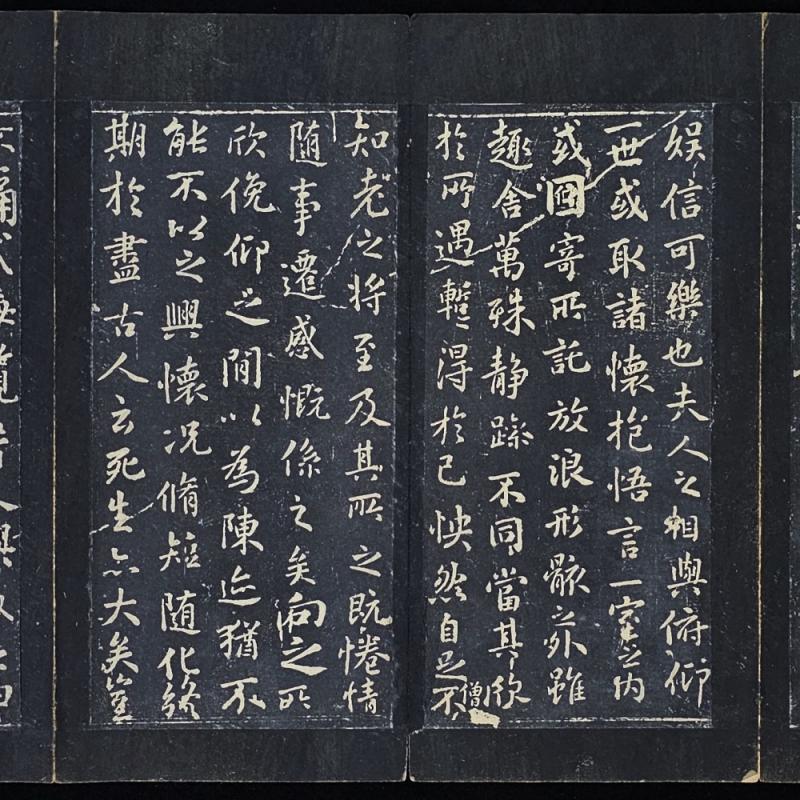 娱信可樂也夫人之相與俯仰
一世或取諸懷抱悟言一室之内
或因寄所託放浪形骸之外雖
趣舍萬殊静躁不同當其欣
僧
於所遇蹔得於己怏然自足不
知老之將至及其所之既惓情
随事遷感慨係之矣向之所
欣俛仰之閒以為陳迹猶不
能不以之興懷况脩短随化終
期於盡古人云死生亦大矣豈